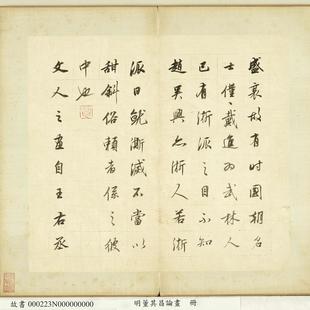 盛衰故有時國朝名
士僅〻戴進為武林人
已有浙派之目不知
趙吳興亦浙人若浙
派日就澌滅不當以
甜斜俗賴者係之彼
中也
文人之畫自王右丞
故書 000223N000000000 明董其昌論畫 冊